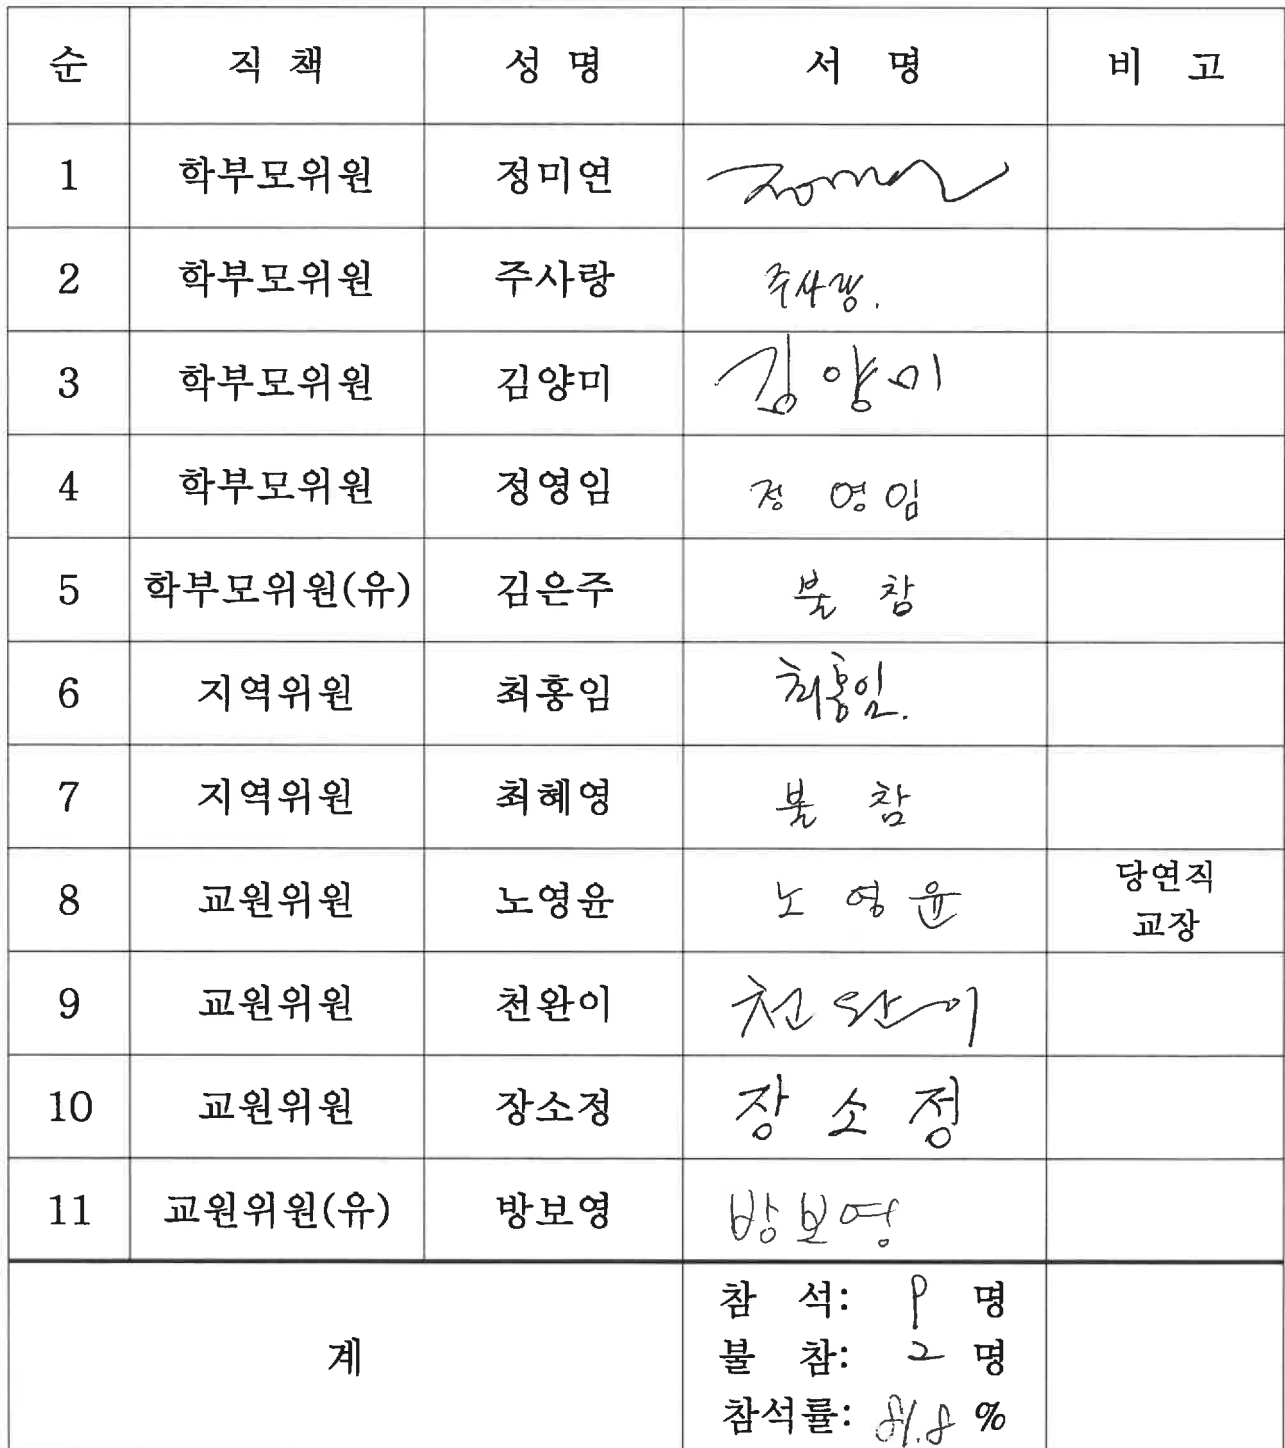 순 직 책 성 명 서 명 비 고
1 학부모위원 정미연
2 학부모위원 주사랑 주사랑.
3 학부모위원 김양미 김양미
4 학부모위원 정영임 정 영임
5 학부모위원(유) 김은주 불 참
6 지역위원 최홍임 최홍임.
7 지역위원 최혜영 불 참
8 교원위원 노영윤 노 영 윤 당연직
교장
9 교원위원 천완이 천완이
10 교원위원 장소정 장 소 정
11 교원위원(유) 방보영 방보영
계 참 석: 9 명
불 참: 2 명
참석률: 81.8 %